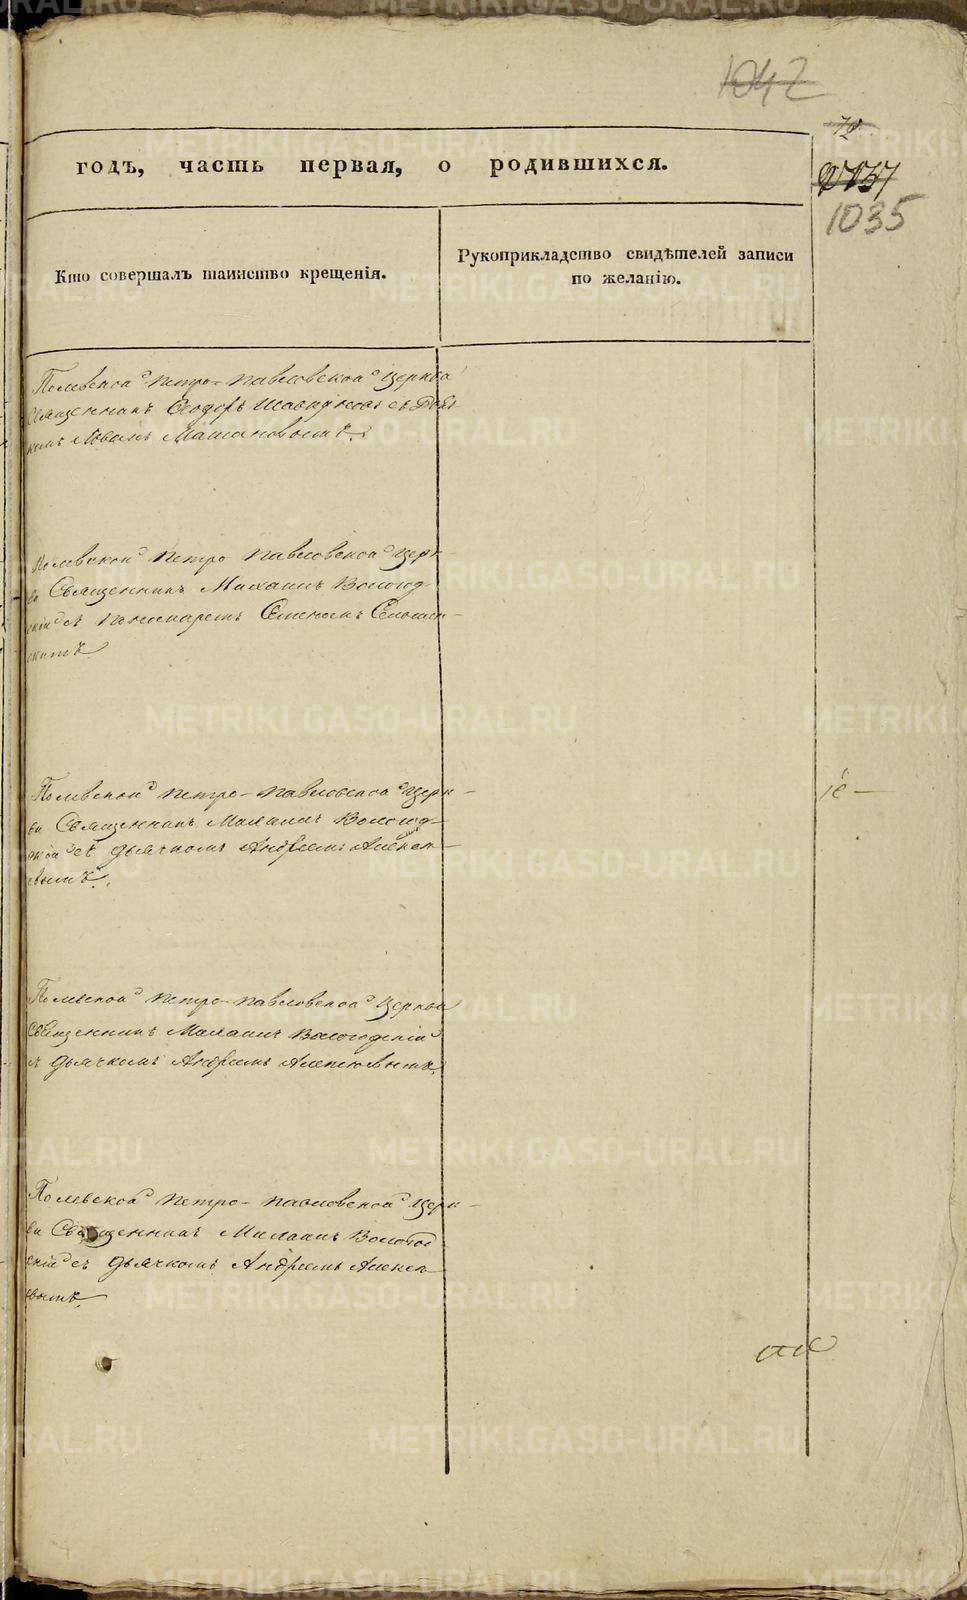 1042
70
1035
годъ, часть первая, о родившихся.
Кто совершалъ таинство крещенія.
Рукоприкладство свидѣтелей записи
по желанію.
Полевской Петро-Павловской Церкви
Священникъ Ѳеодоръ съ
Полевской Петро Павловской Церк-
ви Священникъ Михаилъ Вологод-
скій съ Пономаремъ Семеномъ
скимъ
Полевской Петро-Павловской Церк-
ви Священникъ Михаилъ Вологод-
скій съ дьячкомъ Андреемъ Алексе-
евымъ.
Полевской Петро-Павловской Церкви
Священникъ Михаилъ Вологодскій
съ дьячкомъ Андреемъ
Полевской Петро-Павловской Церк-
ви Священникъ Михаилъ Вологод
скій съ дьячкомъ Андреемъ Алексе
евымъ.
METRIKI.GASO-URAL.RU